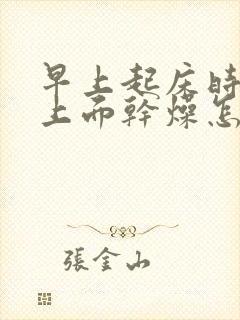 早上起床时
上而幹燥怎
張金山